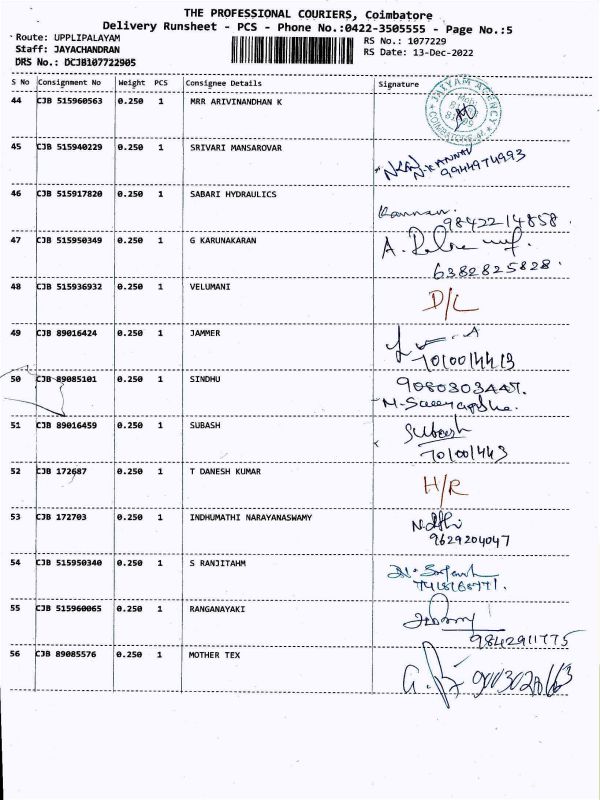 THE PROFESSIONAL COURIERS, Coimbatore
Delivery Runsheet - PCS - Phone No.:0422-3505555 - Page No.:5
Route: UPPLIPALAYAM
RS No.: 1077229
Staff: JAYACHANDRAN
RS Date: 13-Dec-2022
DRS No.: DCJB107722905
S No Consignment No Weight PCS Consignee Details Signature
44 CJB 515960563 0.250 1 MRR ARIVINANDHAN K
JAIYAM AGENCY
45 CJB 515940229 0.250 1 SRIVARI MANSAROVAR
N.KANNAN
9944974993
46 CJB 515917820 0.250 1 SABARI HYDRAULICS
Kannan.
9842214858.
47 CJB 515950349 0.250 1 G KARUNAKARAN
A.
6382825828.
48 CJB 515936932 0.250 1 VELUMANI D/L
49 CJB 89016424 0.250 1 JAMMER
7010014413
50 CJB 89085101 0.250 1 SINDHU
9080303447.
51 CJB 89016459 0.250 1 SUBASH
Subash
701001443
52 CJB 172687 0.250 1 T DANESH KUMAR H/R
53 CJB 172703 0.250 1 INDHUMATHI NARAYANASWAMY
9629204047
54 CJB 515950340 0.250 1 S RANJITAHM
55 CJB 515960065 0.250 1 RANGANAYAKI
9842911775
56 CJB 89085576 0.250 1 MOTHER TEX